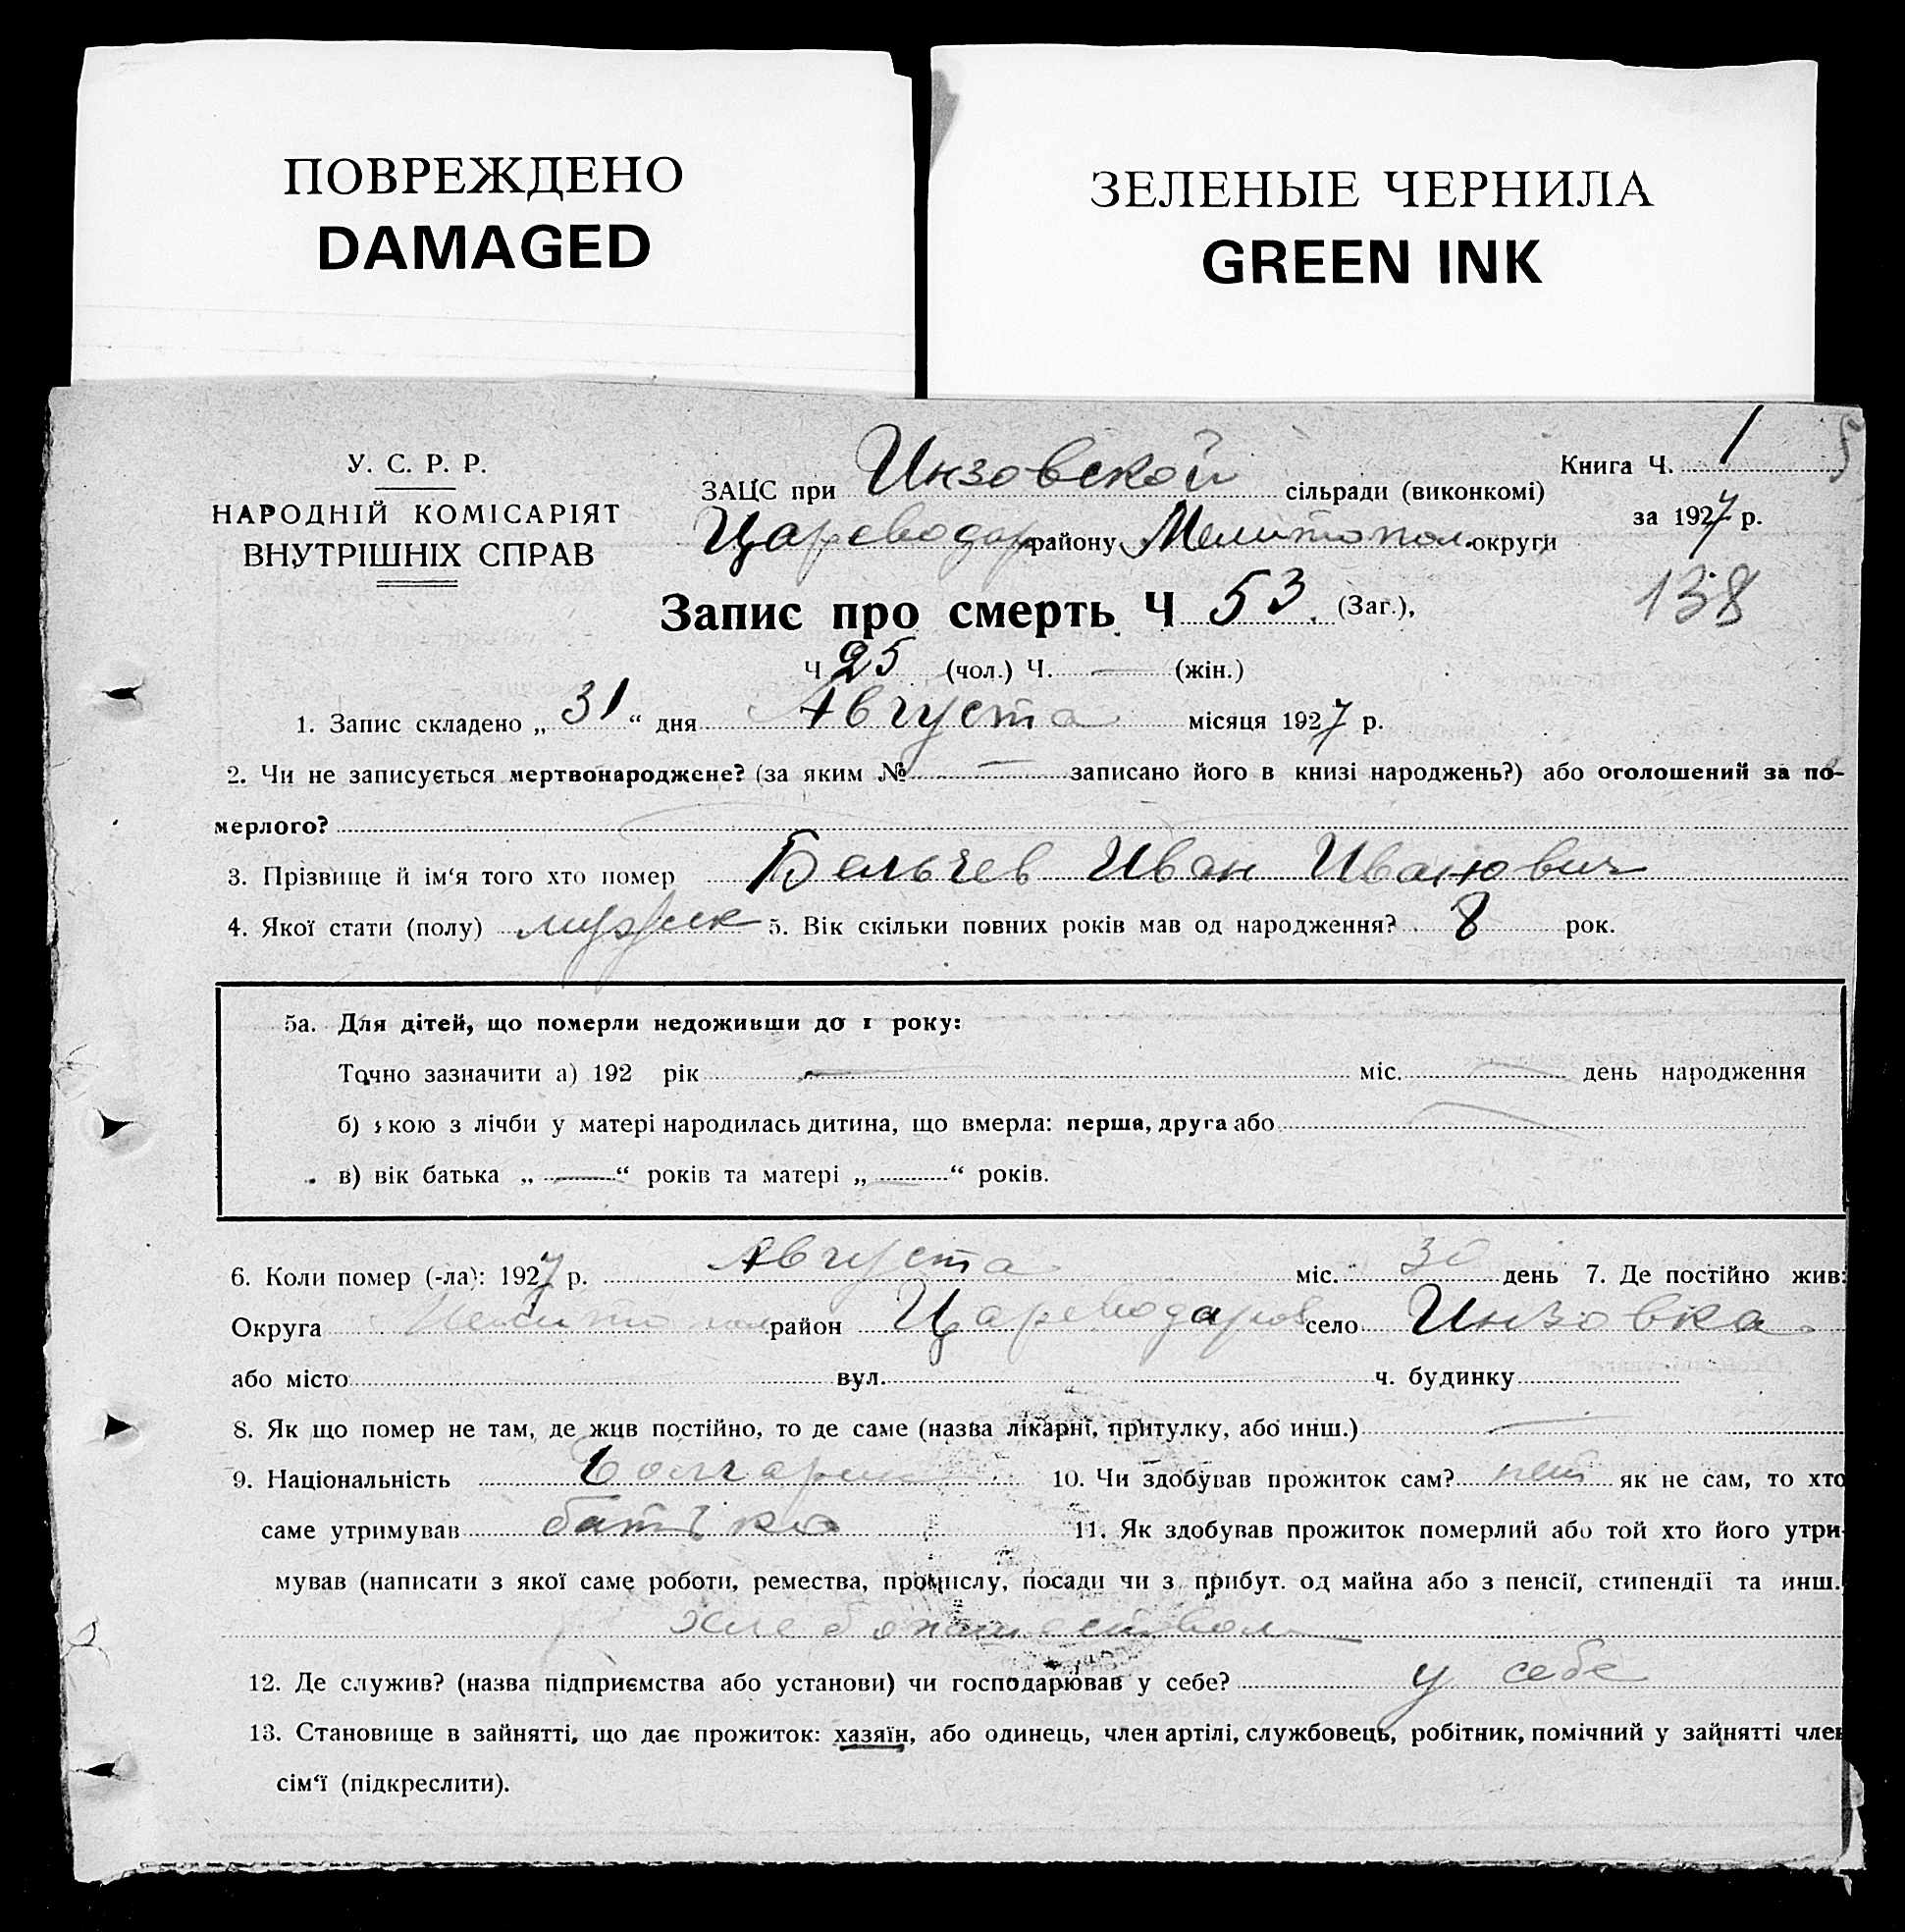 ПОВРЕЖДЕНО
DAMAGED
ЗЕЛЕНЫЕ ЧЕРНИЛА
GREEN INK
У. С. Р. Р.
НАРОДНІЙ КОМІСАРІЯТ
ВНУТРІШНІХ СПРАВ
Книга Ч. 1
за 1927 р.
138
ЗАЦС при Инзовской сільради (виконкомі)
Цареводар району Мелитопол. округи
Запис про смерть Ч 53. (Заг.),
Ч 25 (чол.) Ч. — (жін.)
1. Запис складено „ 31 “ дня Августа місяця 1927 р.
2. Чи не записується мертвонароджене? (за яким № — записано його в книзі народжень?) або оголошений за по-
мерлого?
3. Прізвище й ім‘я того хто помер Бельчев Иван Иванович
4. Якої стати (полу) мужск 5. Вік скільки повних років мав од народження? 8 рок.
5а. Для дітей, що померли недоживши до 1 року:
Точно зазначити а) 192 рік — міс. — день народження
б) кою з лічби у матері народилась дитина, що вмерла: перша, друга або
в) вік батька „ — “ років та матері „ — “ років.
6. Коли помер (-ла): 1927 р. Августа міс. 30 день 7. Де постійно жив:
Округа Мелитопол. район Цареводаров село Инзовка
або місто вул. ч. будинку
8. Як що помер не там, де жив постійно, то де саме (назва лікарні, притулку, або инш.) —
9. Національність Болгарин 10. Чи здобував прожиток сам? нет як не сам, то хто
саме утримував батько 11. Як здобував прожиток померлий або той хто його утри-
мував (написати з якої саме роботи, ремества, промислу, посади чи з прибут. од майна або з пенсії, стипендії та инш.
Хлебопашеством
12. Де служив? (назва підприємства або установи) чи господарював у себе? у себе
13. Становище в зайнятті, що дає прожиток: хазяїн, або одинець, член артілі, службовець, робітник, помічний у зайнятті член
сім‘ї (підкреслити).